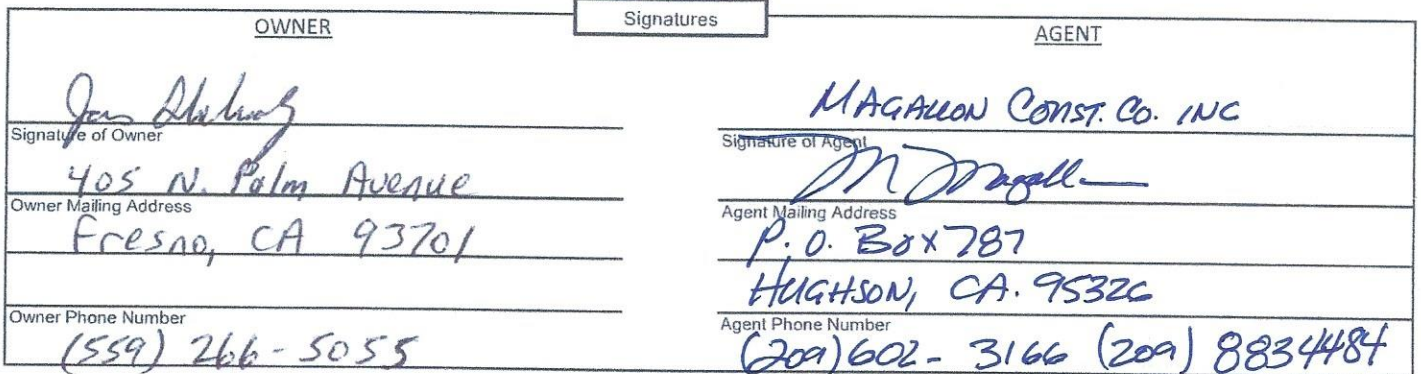 Signatures
OWNER
Signature of Owner
405 N. Palm Avenue
Owner Mailing Address
Fresno, CA 93701
Owner Phone Number
(559) 266-5055
AGENT
MAGALLON CONST. CO. INC
Signature of Agent
M Magall
Agent Mailing Address
P.O. Box 787
HUGHSON, CA. 95326
Agent Phone Number
(209) 602-3166 (209) 8834484